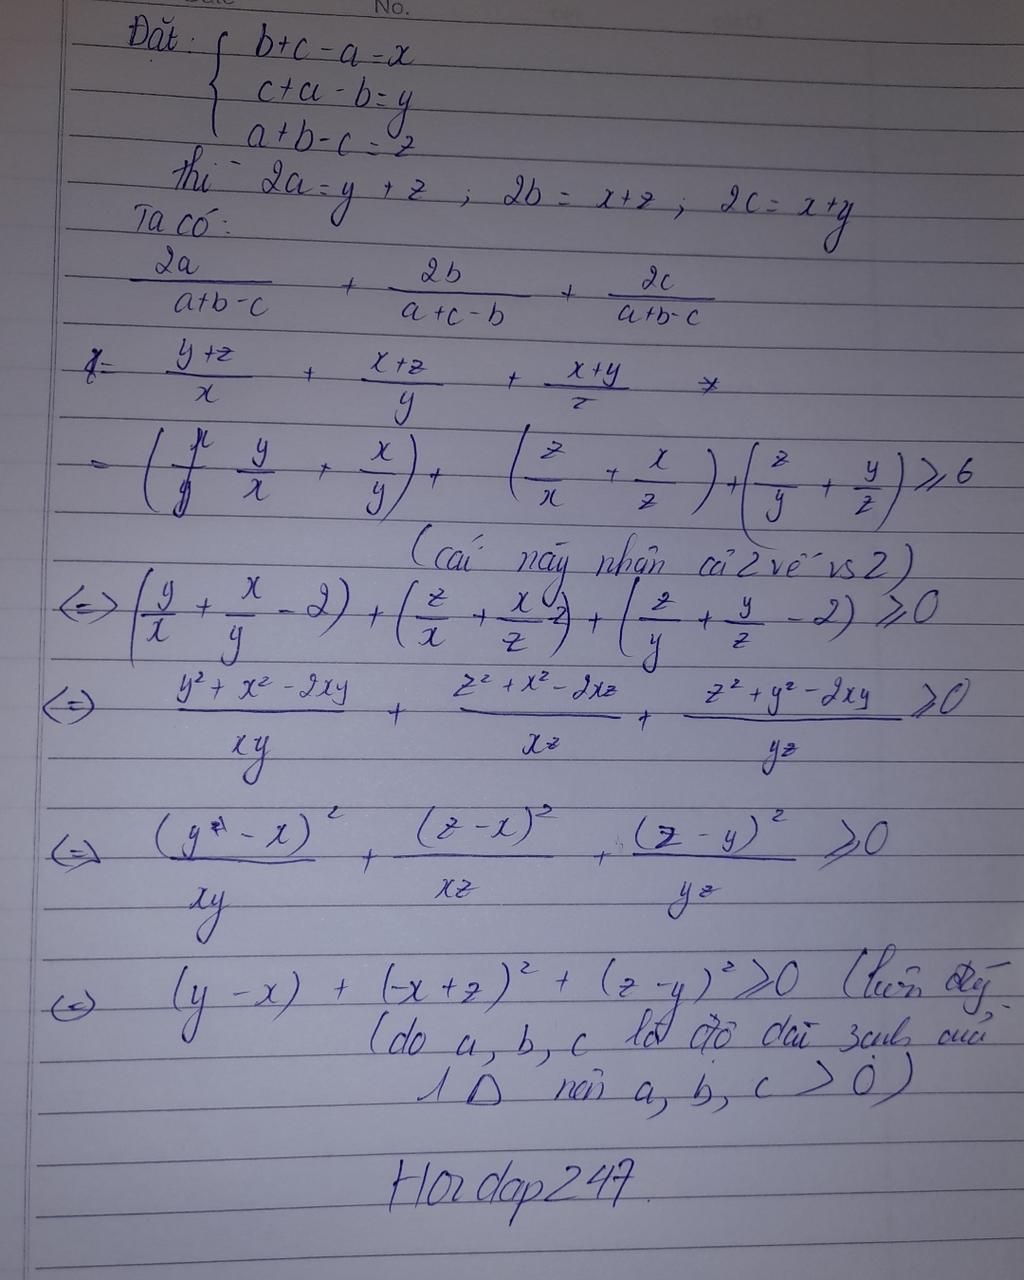 No.
Đặt: { b+c-a=x
c+a-b=y
a+b-c=z
thì 2a=y+z ; 2b = x+z ; 2c = x+y
Ta có:
2a/(a+b-c) + 2b/(a+c-b) + 2c/(a+b-c)
= (y+z)/x + (x+z)/y + (x+y)/z
= (y/x + x/y) + (z/x + x/z) + (z/y + y/z) ≥ 6
(cái này nhân cả 2 vế vs 2)
<=> (y/x + x/y - 2) + (z/x + x/z - 2) + (z/y + y/z - 2) ≥ 0
<=> (y² + x² - 2xy)/xy + (z² + x² - 2xz)/xz + (z² + y² - 2xy)/yz ≥ 0
<=> (y - x)²/xy + (z - x)²/xz + (z - y)²/yz ≥ 0
<=> (y - x) + (-x + z)² + (z - y)² ≥ 0 (luôn
(do a, b, c là độ dài cạnh của
1 Δ nên a, b, c > 0)
Hoidap247